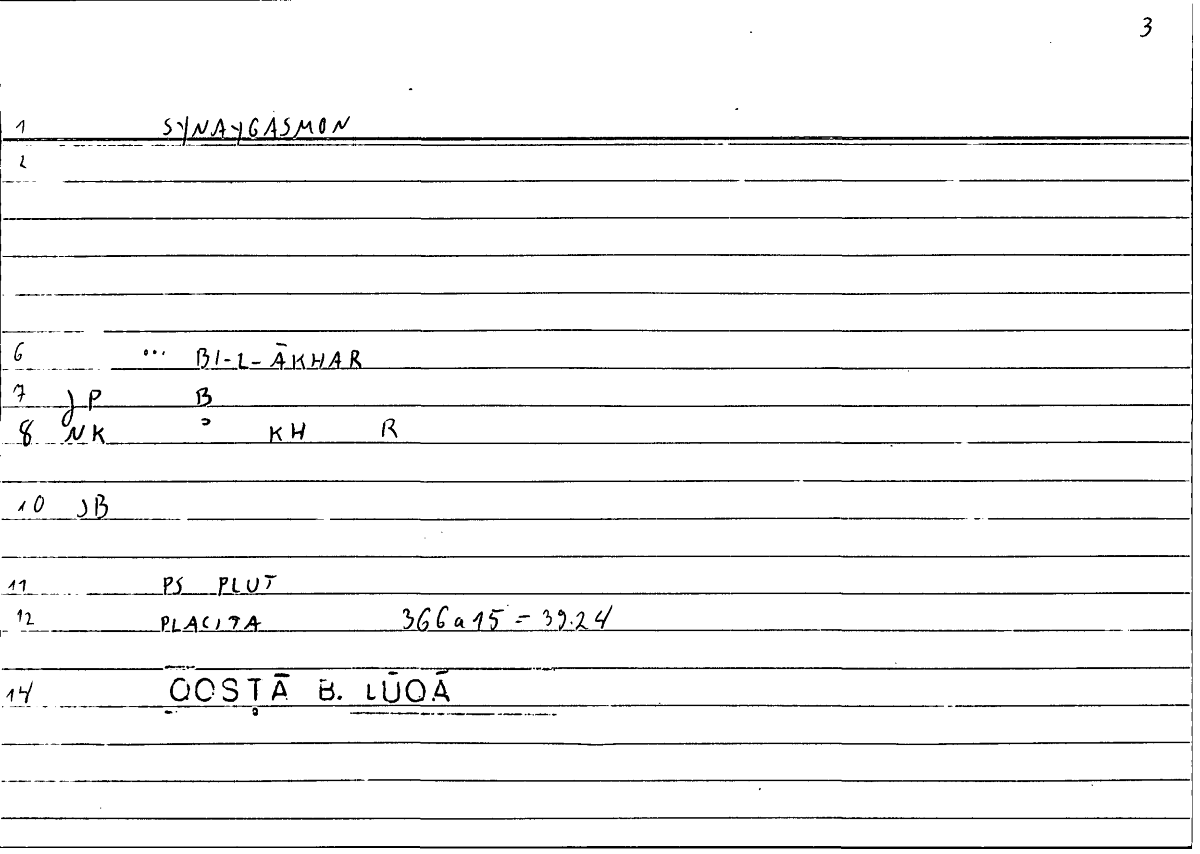 3
1 SYNAYGASMON
2
6 ... BI-L-ĀKHAR
7 JP B
8 NK KH R
10 JB
11 PS PLUT
12 PLACITA 366a15 = 39.24
14 QOSṬĀ B. LŪQĀ